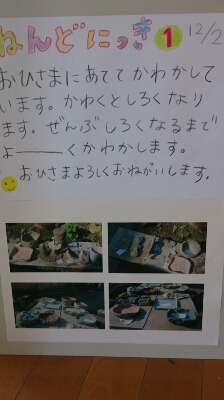 ねんどにっき 1 12/2
おひさまにあててかわかして
います。かわくとしろくなり
ます。ぜんぶしろくなるまで
よーーくかわかします。
おひさまよろしくおねがいします。